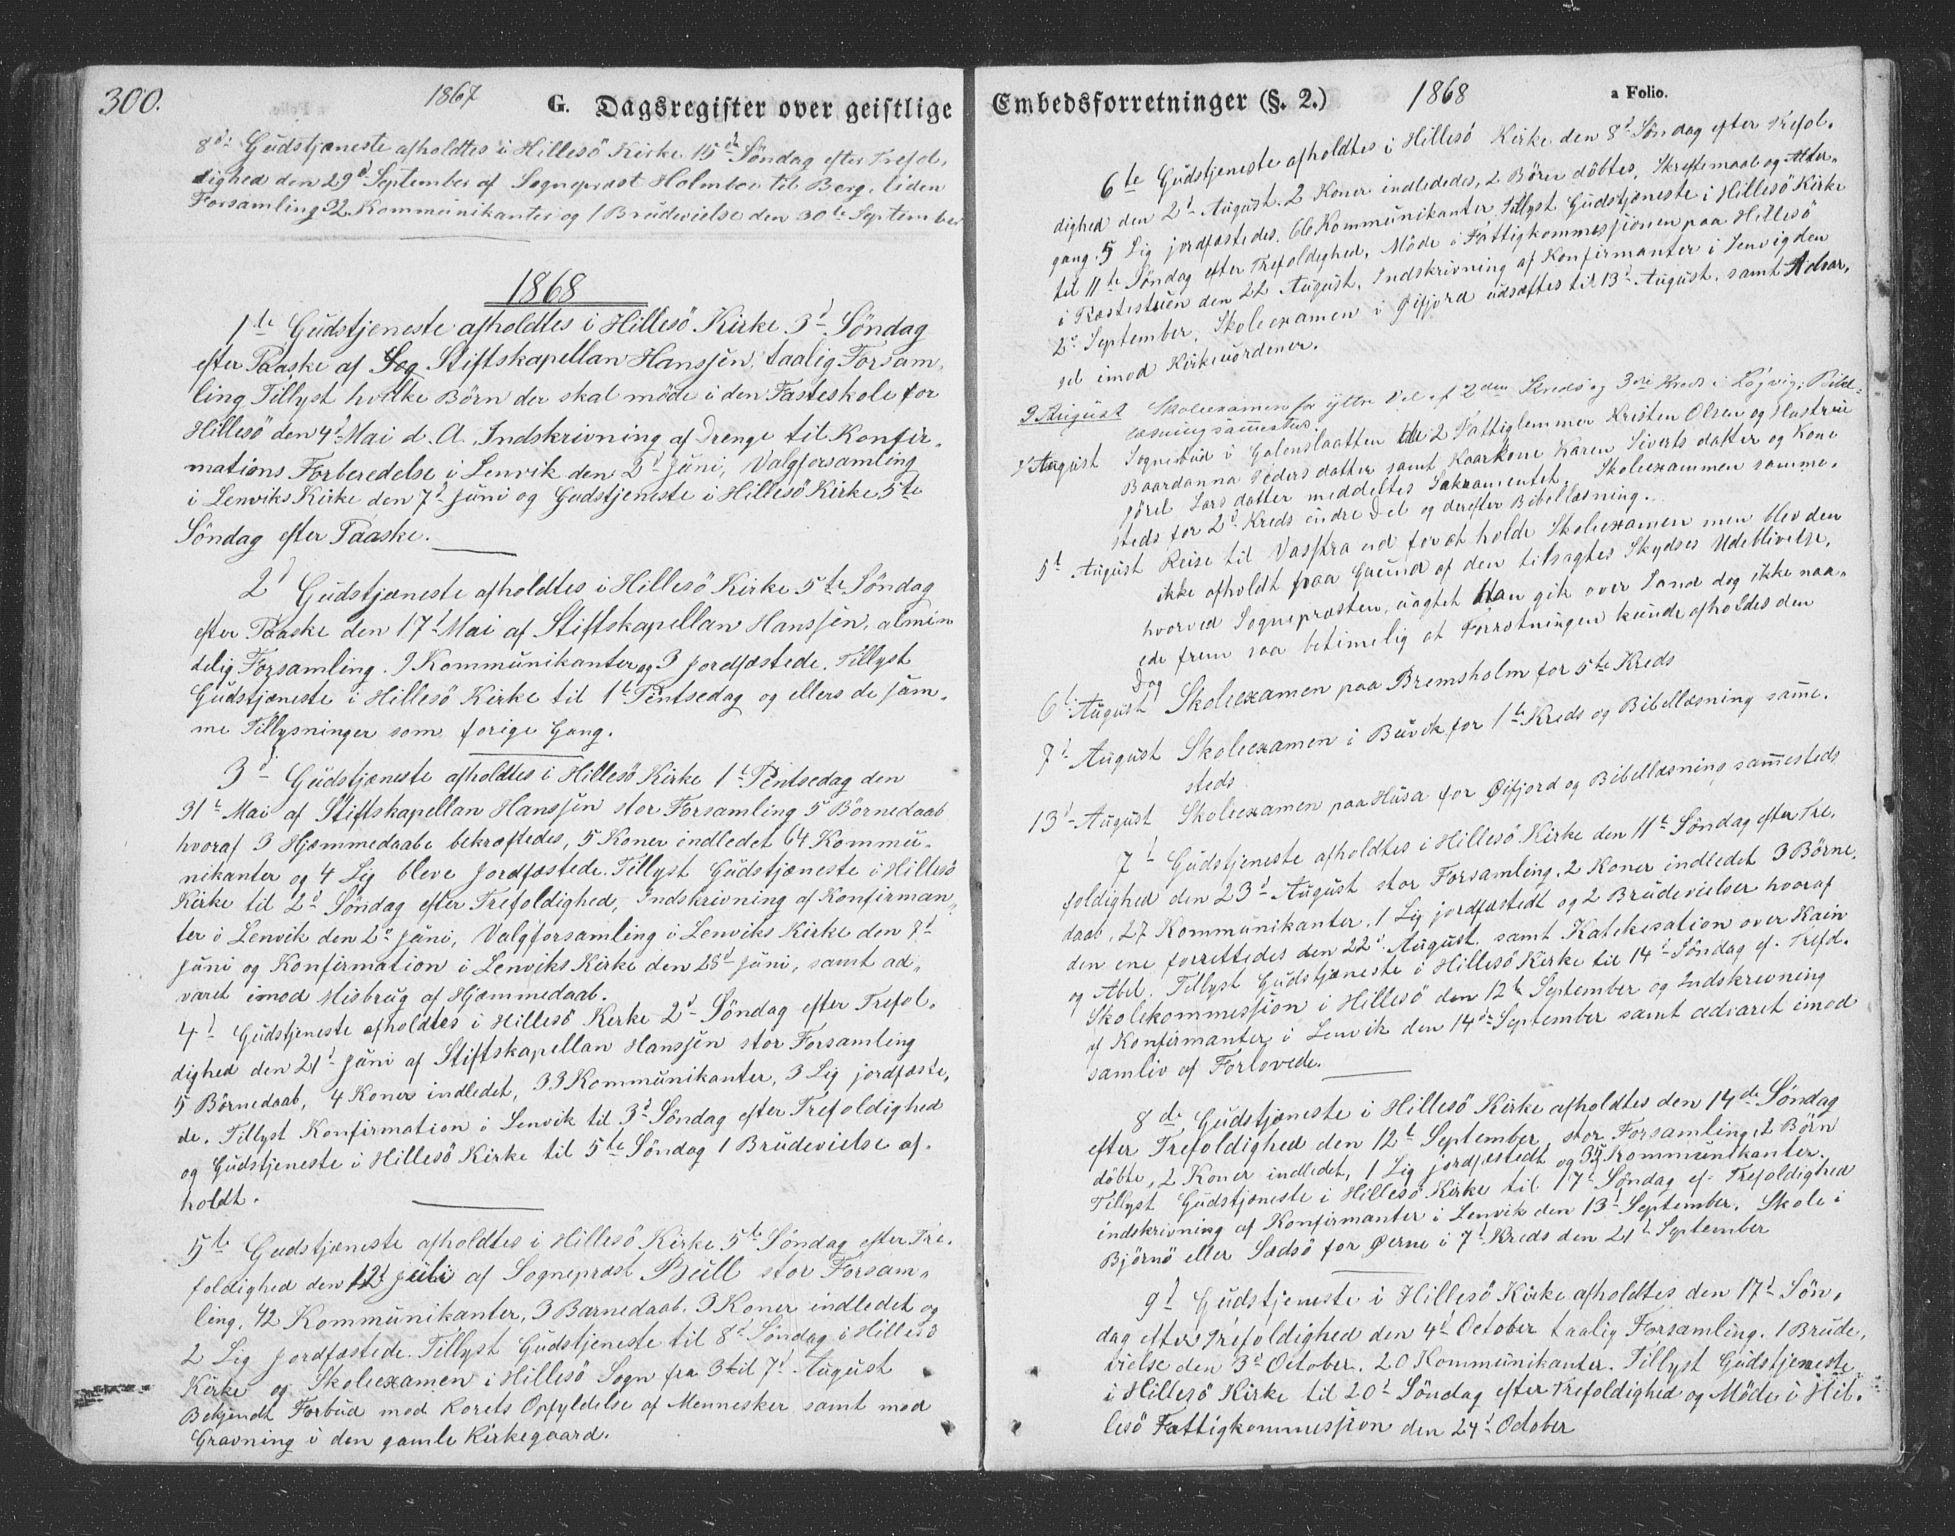 300.
1867
G. Dagsregister over geistlige
8de Gudstjæneste afholdtes i Hillesö Kirke 15d Söndag efter Trefol,
dighed den 29d September af Sognepræst Holmboe til Berg, liden
Forsamling 32 Kommunikanter og 1 Brudevielse den 30te September
1868
1te Gudstjeneste afholdtes i Hillesö Kirke 3d Söndag
efter Paaske af Sog Stiftskapellan Hanssen, taalig Forsam,
ling Tillyst hvilke Börn der skal möde i den Fasteskole for
Hillesö den 4d Mai d. A. Indskrivning af Drenge til Konfir,
mations Forberedelse i Lenvik den 2d Juni, Valgforsamling
i Lenviks Kirke den 7d Juni og Gudstjeneste i Hillesö Kirke 5te
Söndag efter Paaske.
2d Gudstjæneste afholdtes i Hillesö Kirke 5te Söndag
efter Paaske den 17d Mai af Stiftskapellan Hanssen, almin
delig Forsamling. 9 Kommunikanter og 3 jordfæstede. Tillyst
Gudstjæneste i Hillesö Kirke til 1te Pintsedag og ellers de sam,
me Tillysninger som forige Gang.
3d Gudstjæneste afholdtes i Hillesö Kirke 1te Pintsedag den
31te Mai af Stiftskapellan Hanssen stor Forsamling 5 Börnedaab
hvoraf 3 Hjæmmedaabe bekræftedes, 5 Koner indledet 64 Kommu,
nikanter og 4 Lig bleve jordfæstede. Tillyst Gudstjæneste i Hillesö
Kirke til 2d Söndag efter Trefoldighed, Indskrivning af Konfirman,
ter i Lenvik den 2d Juni, Valgforsamling i Lenviks Kirke den 7d
Juni og Konfirmation i Lenviks Kirke den 28d Juni, samt ad,
varet imod Misbrug af Hjæmmedaab.
4d Gudstjeneste afholdtes i Hillesö Kirke 2d Söndag efter Trefol,
dighed den 21d Juni af Stiftskapellan Hanssen stor Forsamling
5 Börnedaab, 4 Koner indledet, 33 Kommunikanter, 3 Lig jordfæste,
de. Tillyst Konfirmation i Lenvik til 3d Söndag efter Trefoldighed
og Gudstjeneste i Hillesö Kirke til 5te Söndag 1 Brudevielse af,
holdt.
5te Gudstjæneste afholdtes i Hillesö Kirke 5te Söndag efter Tre,
foldighed den 12d Juli af Sognepræst Bull stor Forsam,
ling, 42 Kommunikanter, 3 Barnedaab. 3 Koner indledet og
2 Lig jordfæstede. Tillyst Gudstjeneste til 8d Söndag i Hillesö
Kirke og Skoleexamen i Hillesö Sogn fra 3 til 7d August
Bekjendt Forbud mod Korets Opfyldelse af Mennesker samt mod
Gravning i den gamle Kirkegaard.
Embedsforretninger (§. 2.)
1868
a Folio.
6te Gudstjeneste afholdtes i Hillesö Kirke den 8d Söndag efter Trefol,
dighed den 2d August. 2 Koner indlededes, 2 Börn döbtes, Skriftemaal og Alter,
gang. 5 Lig jordfæstedes. 66 Kommunikanter, Tillyst Gudstjeneste i Hillesö Kirke
til 11te Söndag efter Trefoldighed, Möde i Fattigkommissionen paa Hillesö
i Præstestuen den 22 August, Indskrivning af Konfirmanter i Lenvig den
2d September, Skoleexamen i Øifjord udsættes til 13d August, samt Advar,
sel imod Kirkeuordener.
3 August Skoleexamen for yttre Del af 2den Kreds og 3die Kreds i Löjvig; Bibel,
læsning sammesteds.
4d August Sognebud i Galenslaatten de 2 Fattiglemmer Kristen Olsen og Hustrue
Baardanna Peders datter samt Kaarkone Karen Siverts datter og Kone
Jörel Lars datter meddeltes Sakramentet. Skoleexammen samme,
steds for 2d Kreds indre Del og derefter Bibellæsning.
5te August Reise til Vasstrand for at holde Skoleexamen men blev den
ikke afholdt paa Grund af den tilsagtes Skydses Udeblivelse,
hvorved Sognepræsten, uagtet Han gik over Land dog ikke naa,
ede frem saa betimelig at Forretningen kunde afholdes den
Dag
6te August Skoleexamen paa Bremsholm for 5te Kreds
7d August Skoleexamen i Buvik for 1te Kreds og Bibellæsning samme,
steds
13d August Skoleexamen paa Husa for Øifjord og Bibellæsning sammesteds
7d Gudstjeneste afholdtes i Hillesö Kirke den 11te Söndag efter Tre,
foldighed den 23d August stor Forsamling, 2 Koner indledet 3 Börne,
daab, 27 Kommunikanter, 1 Lig jordfæstedt og 2 Brudevielser hvoraf
den ene forrettedes den 22d August samt Katekisation over Kain
og Abel. Tillyst Gudstjæneste i Hillesö Kirke til 14d Söndag ef. Trefd.
Skolekommission i Hillesö den 12te September og Indskrivning
af Konfirmanter i Lenvik den 14de September samt advaret imod
samliv af Forlovede.
8de Gudstjæneste i Hillesö Kirke afholdtes den 14de Söndag
efter Trefoldighed den 12te September, stor Forsamling, 2 Börn
döbte, 2 Koner indledet, 1 Lig jordfæstedt og 39 Kommunikanter.
Tillyst Gudstjæneste i Hillesö Kirke til 17d Söndag ef. Trefoldighed
indskrivning af Konfirmanter i Lenvik den 13d September, Skole i
Björnö eller Sædsö for Øerne i 7d Kreds den 21te September
9d Gudstjeneste i Hillesö Kirke afholdtes den 17d Sön,
dag efter Trefoldighed den 4d October taalig Forsamling. 1 Brude,
vielse den 3d October. 20 Kommunikanter. Tillyst Gudstjeneste
i Hillesö Kirke til 20d Söndag efter Trefoldighed og Möde i Hil,
lesö Fattigkommission den 24d October